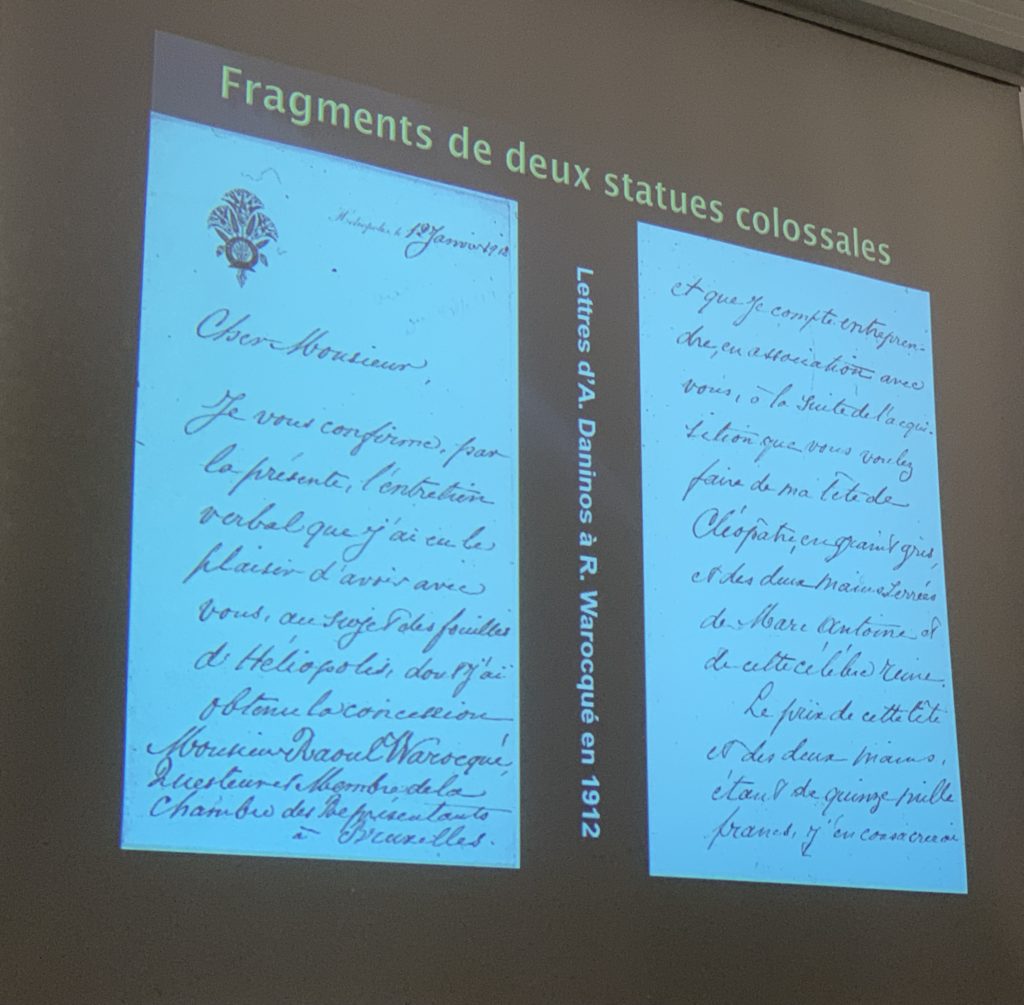 Fragments de deux statues colossales
Héliopolis, le 12 Janvier 1912
Cher Monsieur,
Je vous confirme, par
la présente, l'entretien
verbal que j'ai eu le
plaisir d'avoir avec
vous, au sujet des fouilles
d'Héliopolis, dont j'ai
obtenu la concession
Monsieur Raoul Warocqué,
Questeur et Membre de la
Chambre des Représentants
à Bruxelles.
Lettres d'A. Daninos à R. Warocqué en 1912
et que je compte entrepren-
dre, en association avec
vous, à la suite de l'acqui-
sition que vous voulez
faire de ma tête de
Cléopâtre, en granit gris,
et des deux mains serrées
de Marc Antoine et
de cette célèbre reine.
Le prix de cette tête
et des deux mains,
étant de quinze mille
francs, j'en consacrerai